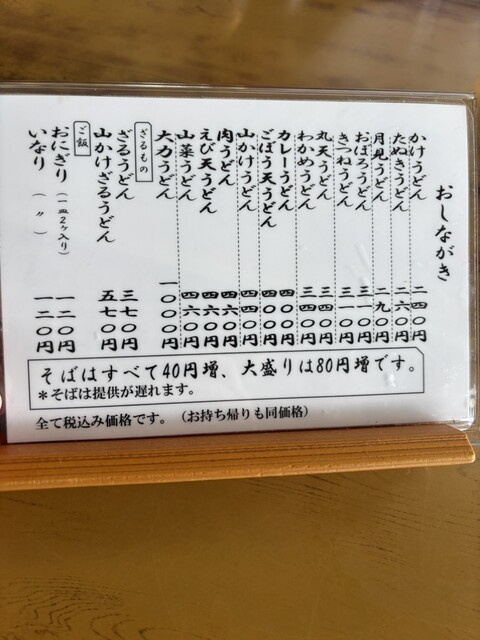 おしながき
かけうどん 二四〇円
たぬきうどん 二六〇円
月見うどん 二九〇円
おぼろうどん 三一〇円
きつねうどん 三一〇円
丸天うどん 三四〇円
わかめうどん 三四〇円
カレーうどん 四〇〇円
ごぼう天うどん 四〇〇円
山かけうどん 四四〇円
肉うどん 四六〇円
えび天うどん 四六〇円
山菜うどん 四六〇円
大力うどん 一〇〇〇円
ざるもの
ざるうどん 三七〇円
山かけざるうどん 五七〇円
ご飯
おにぎり（一皿2ヶ入り） 一二〇円
いなり（ 〃 ） 一二〇円
そばはすべて40円増、大盛りは80円増です。
＊そばは提供が遅れます。
全て税込み価格です。（お持ち帰りも同価格）